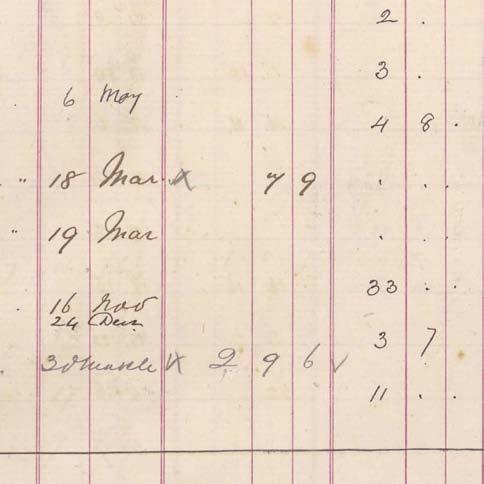 2 .
3 .
6 May
4 8 .
. " 18 Mar. x 7 9 . . .
" 19 Mar . . .
33 . .
. 16 Nov
24 Dec
3 7
. 30 March x 2 9 6 ✓
11 . .